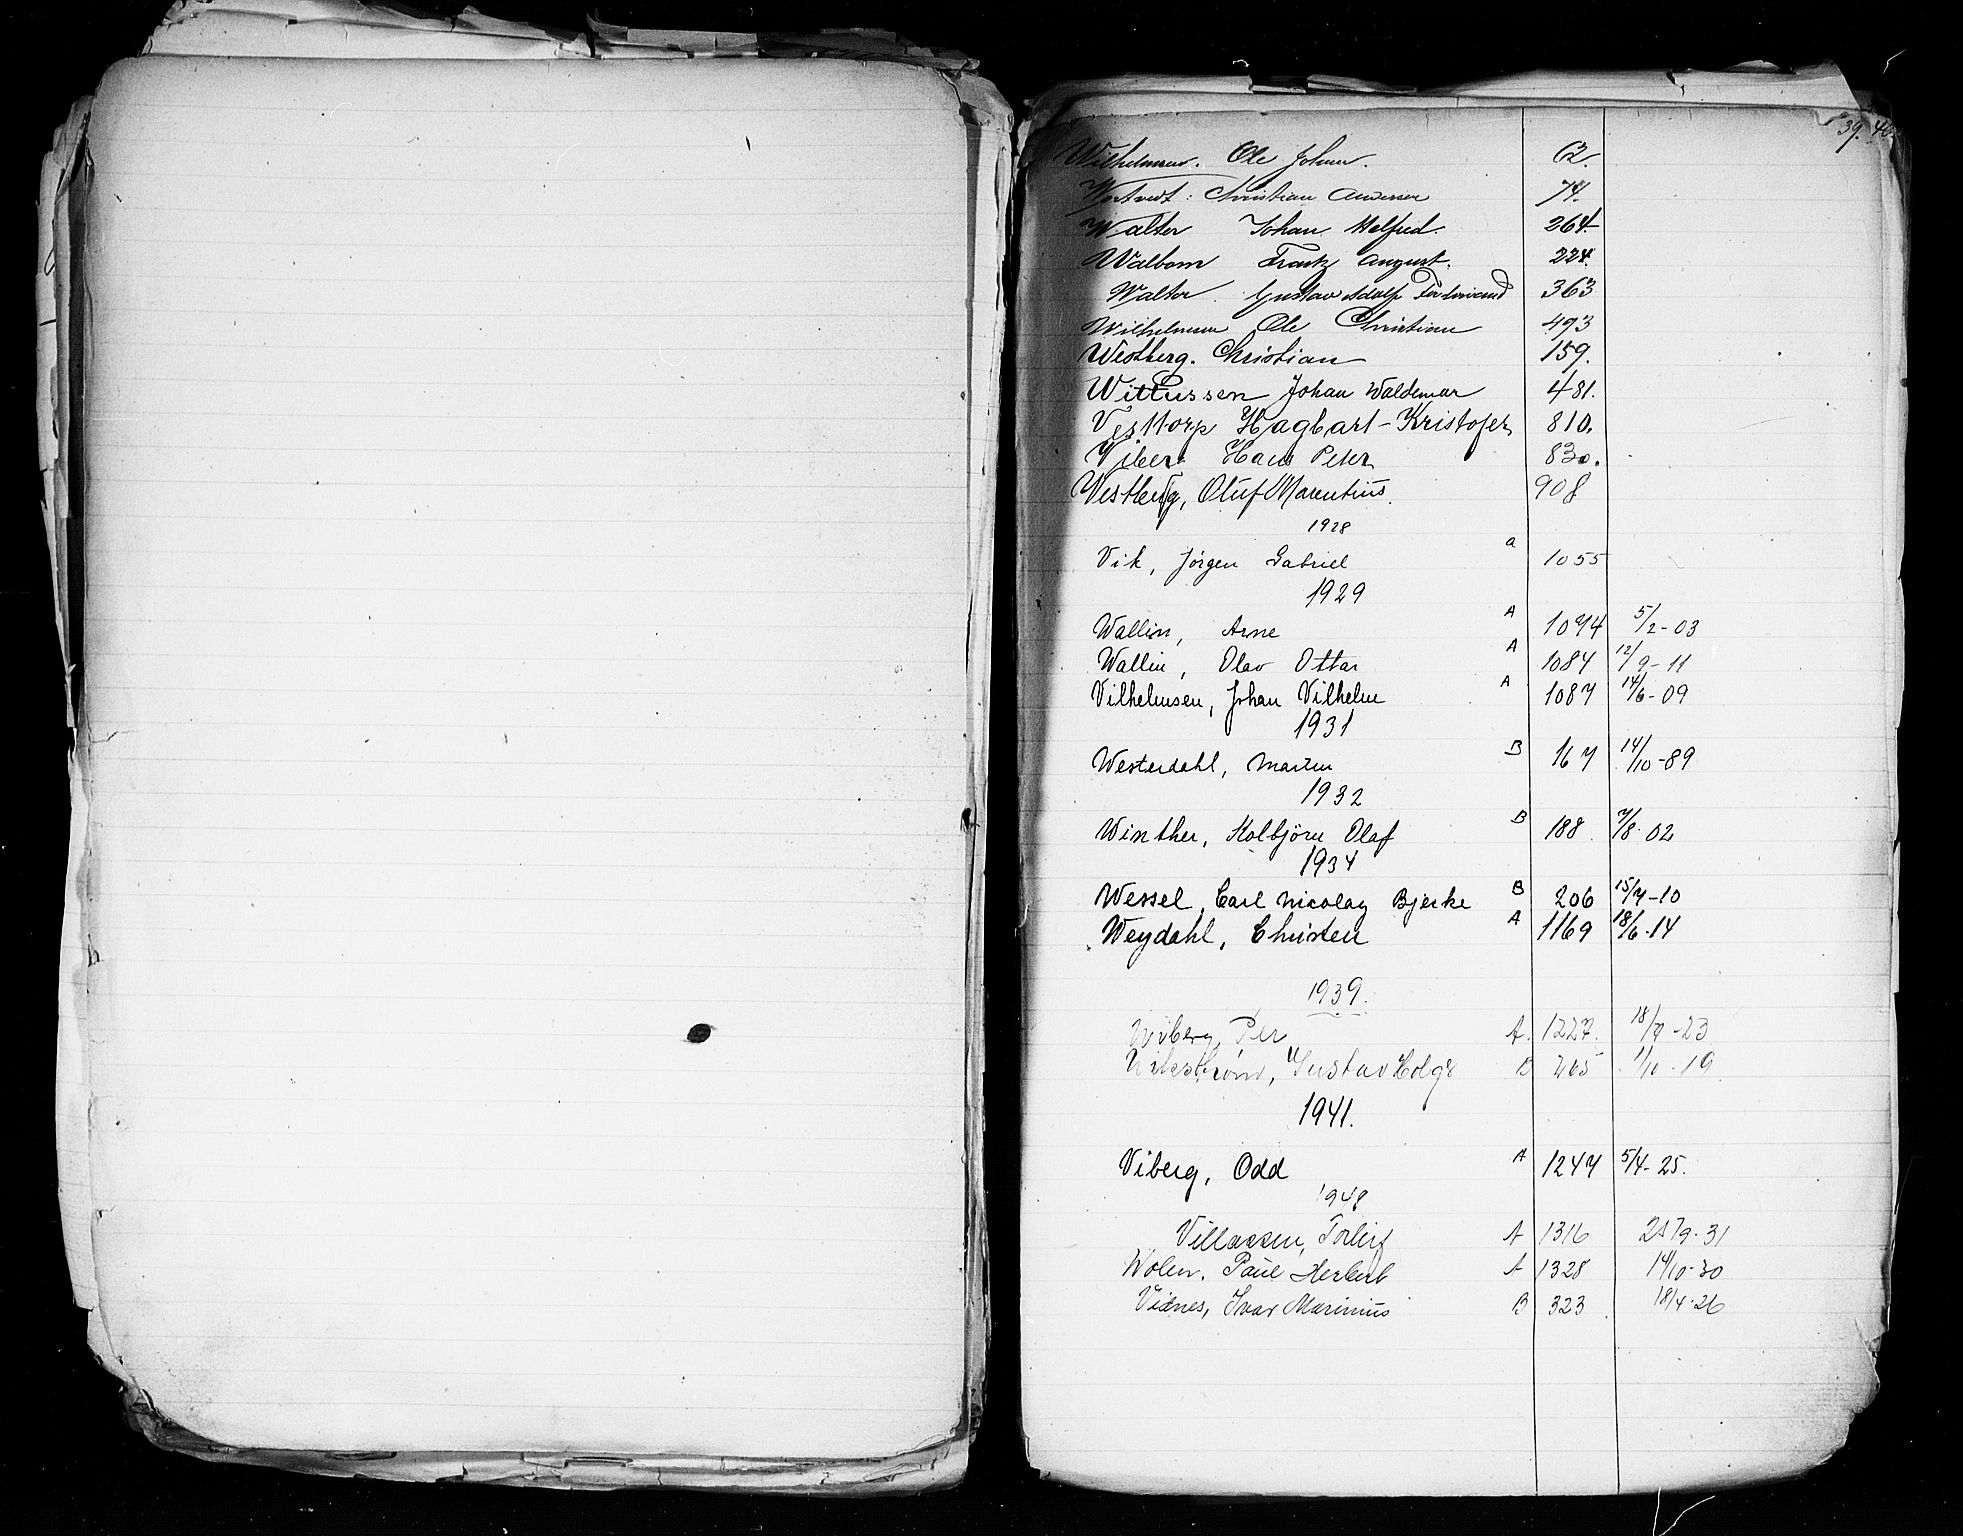 39. 40.
Wilhelmsen. Ole Johan. 2.
Christian Andersen 74.
Walter Johan Helfred. 264.
Walbom Frantz August. 224.
Walter Gustav Adolf Ferdinand 363
Wilhelmsen Ole Christian 493
Westberg. Christian 159.
Wittussen Johan Waldemar 481.
Vesttorp Hagbart-Kristofer 810.
Viberg Hans Peter 830.
Vestberg, Oluf Marentius. 908
1928
Vik, Jörgen Gabriel a 1055
1929
Wallin, Arne A 1074 5/2-03
Wallin, Olav Ottar A 1084 12/9-11
Vilhelmsen, Johan Vilhelm A 1087 14/6-09
1931
Westerdahl, Martin B 167 14/10-89
1932
Winther, Kolbjörn Olaf B 188 7/8-02
1934
Wessel, Carl Nicolay Bjerke B 206 15/7-10
Weydahl, Christen A 1169 18/6-14
1939.
Wiberg, Per A. 1227. 18/9-23
Gustav Holgr B 265 1/10-19
1941.
Viberg, Odd A 1247 5/4-25.
1948
Villassen, Torleif A 1316 9-31
Wolen. Paul Herbert A 1328 14/10-30
Vidnes, Ivar Marinius B 323 18/4-26